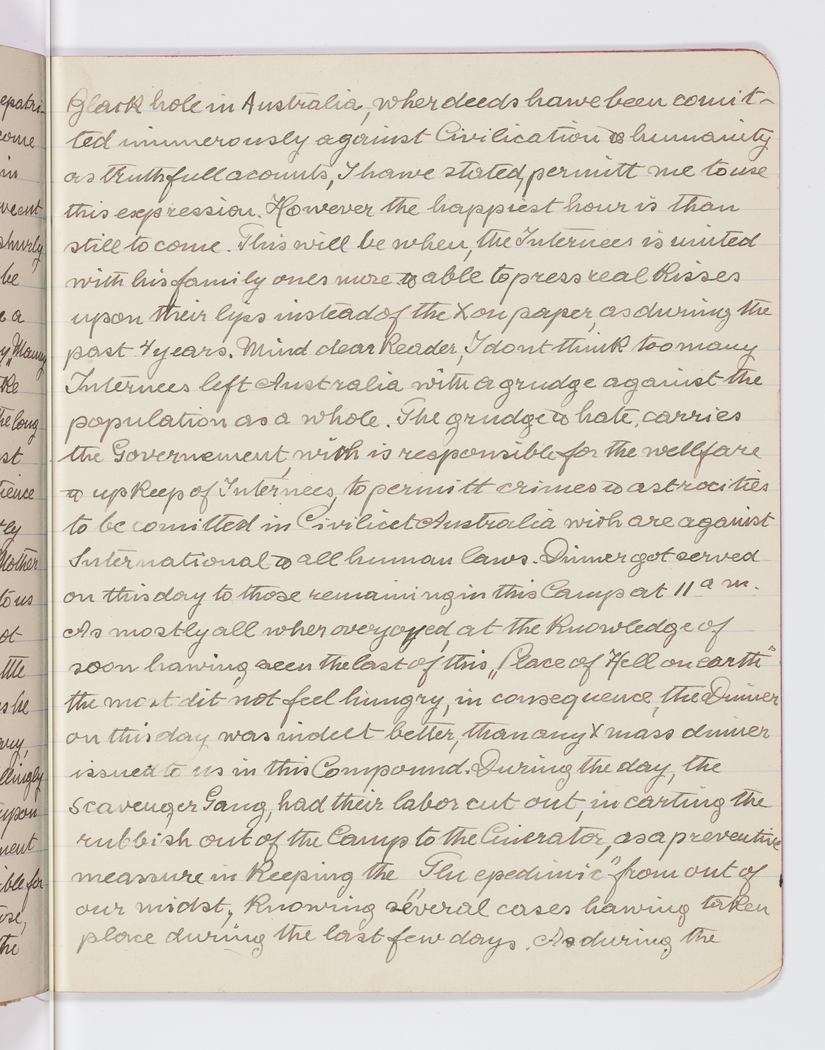 Black hole in Australia, wher deeds hawe been comit-
ted inumerously against Civilication & humanity
as truthfull acounts, I hawe stated, permitt me to use
this expression. However the happiest hour is than
still to come. This will be when, the Internees is united
with his family ones more & able to press real Kisses
upon their lips instead of the X on paper as during the
past 4 years. Mind dear Reader, I dont think too many
Internees left Australia with a grudge against the
population as a whole. The grudge & hate, carries
the Governement, wich is responsible for the wellfare
& upkeep of Internees, to permitt crimes & astrocities
to be comitted in Civilicet Australia wich are against
International & all human laws. Dinner got served
on this day to those remaining in this Camp at 11 a m.
As mostly all wher overyoyed, at the Knowledge of
soon hawing seen the last of this „Place of Hell on earth"
the most dit not feel hungry, in consequence, the Dinner
on this day was indeet better, than any Xmass dinner
issued to us in this Compound. During the day, the
Scavenger Gang, had their labor cut out, in carting the
rubbish out of the Camp to the Cinerator, as a preventive
meassure in Keeping the Flu epedimic" from out of
our midst, Knowing several cases hawing taken
place during the last few days. As during the
epatri-
come
in
be
e a
y Many
ke
the long
st
ey
Mother
to us
ot
ttle
llingly
upon
ment
ible for
the